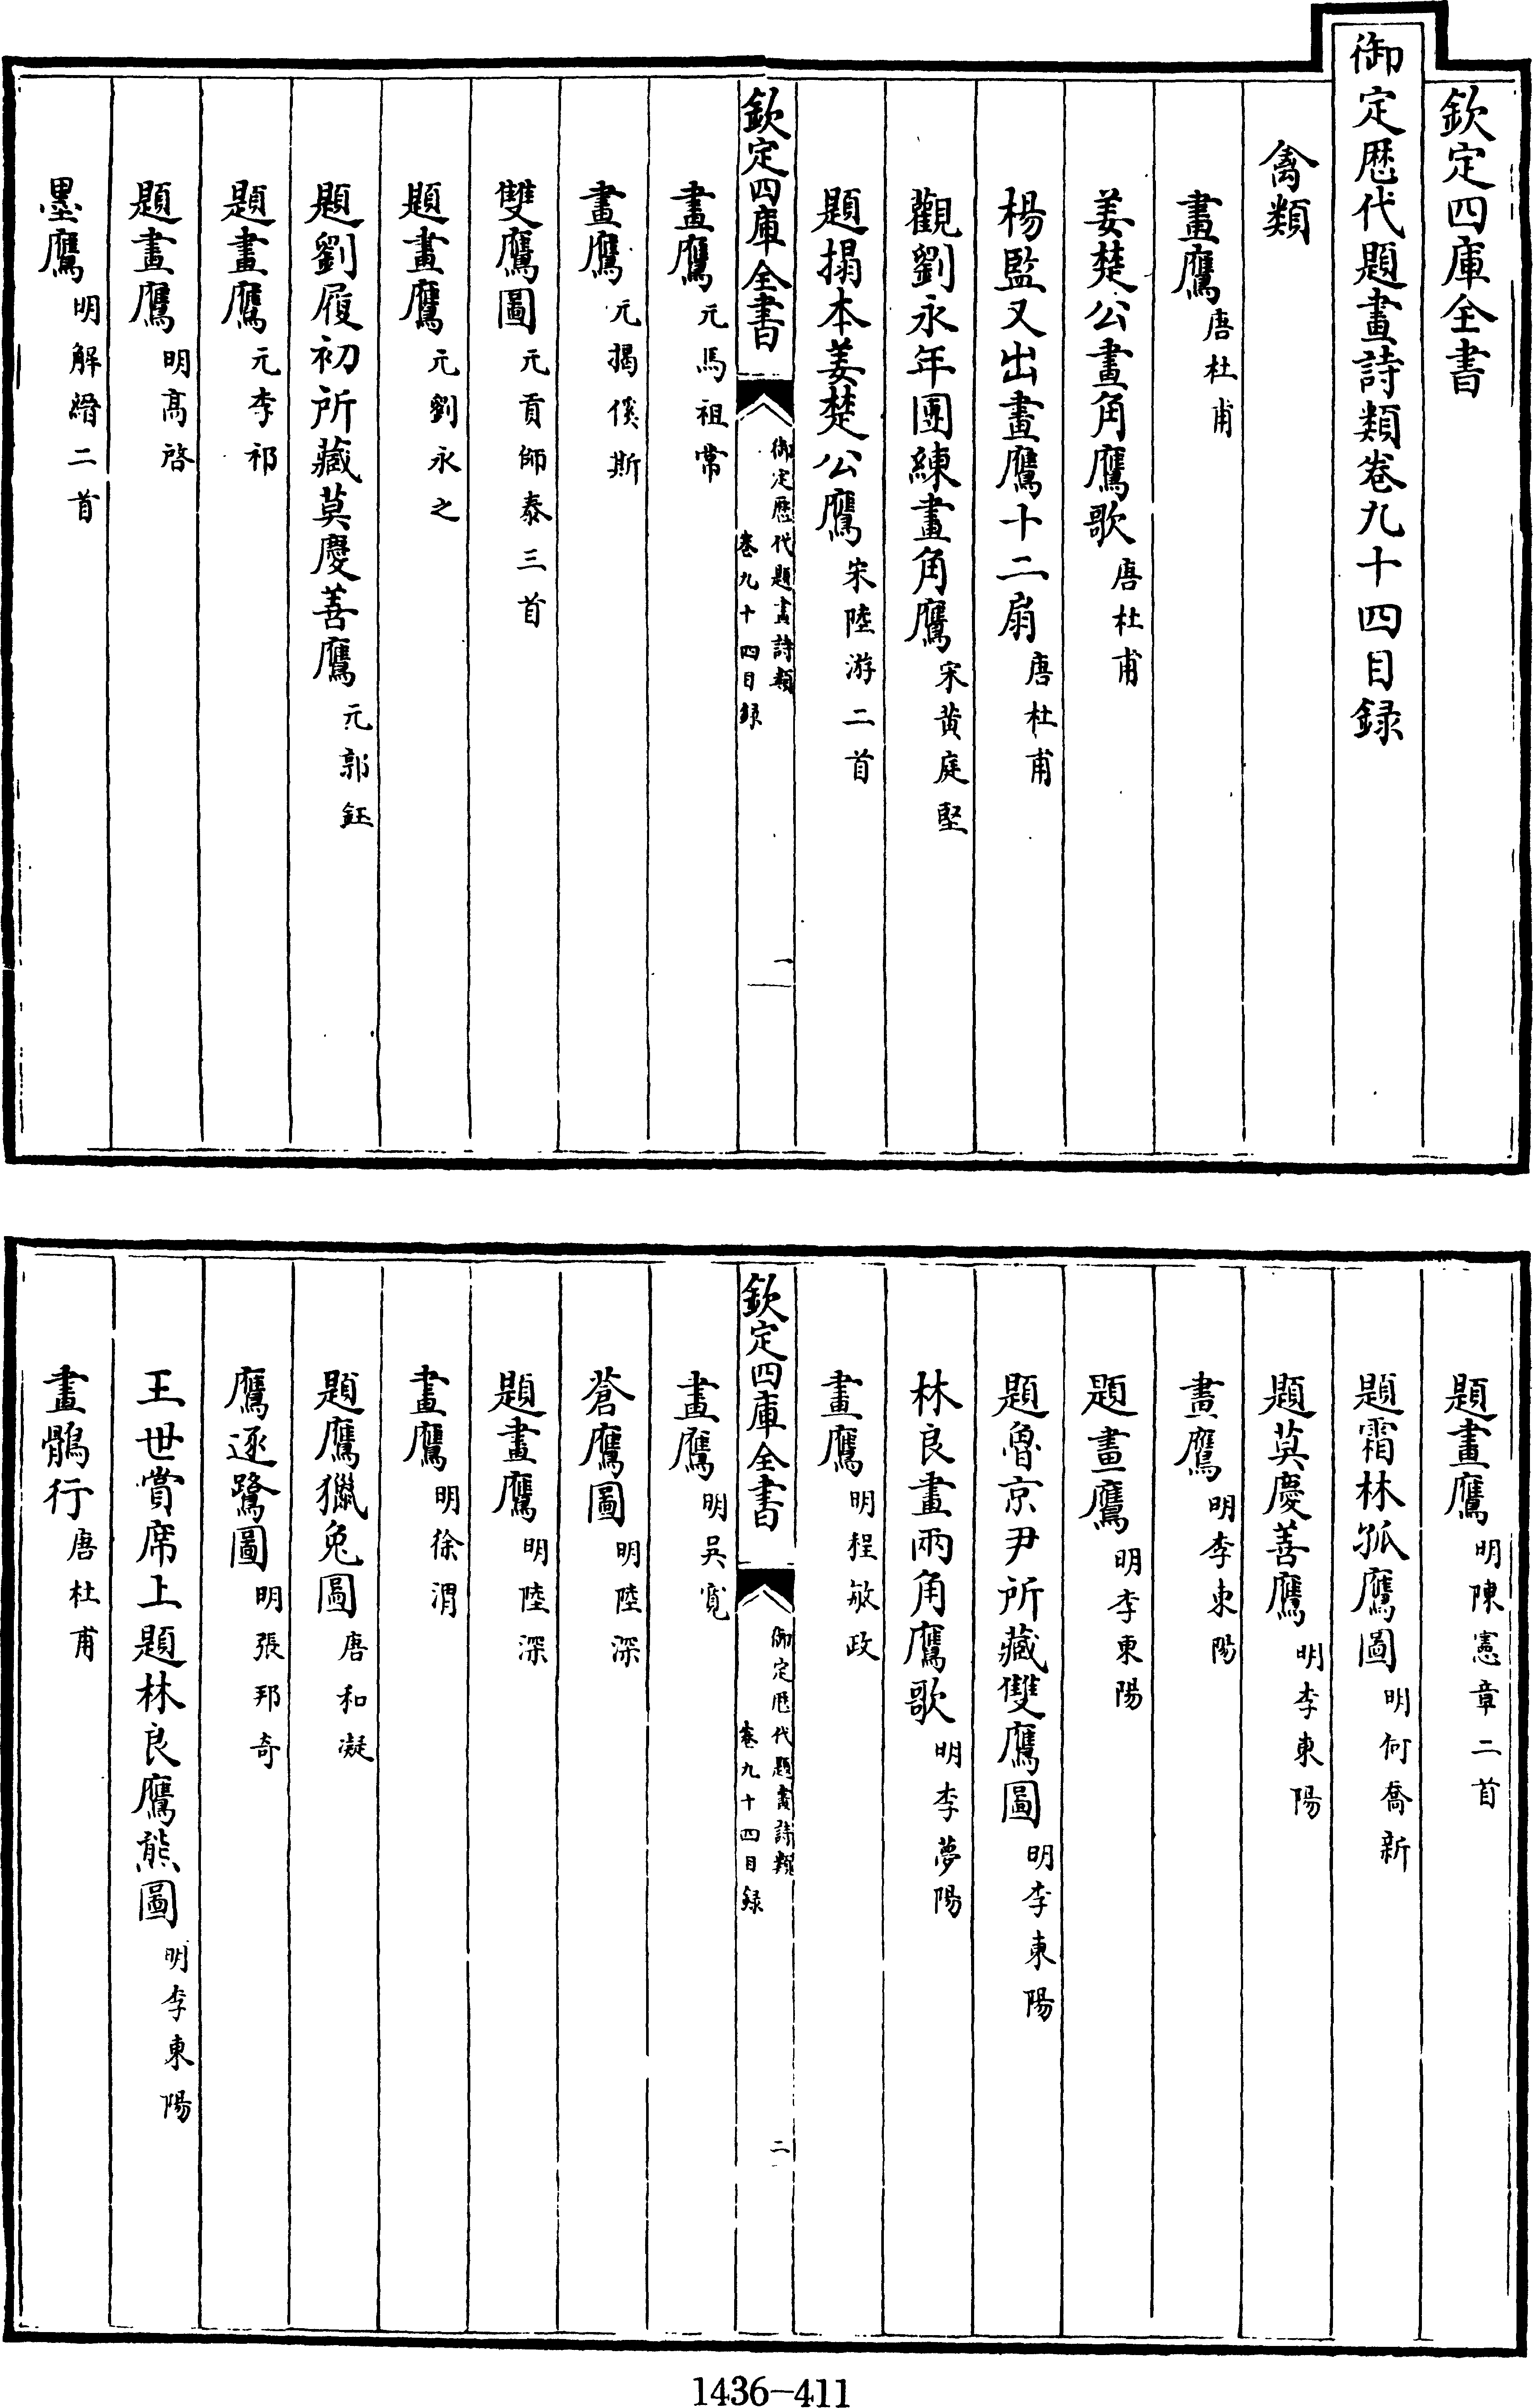 欽定四庫全書
御定歷代題畫詩類卷九十四目録
禽類
畫鷹唐杜甫
姜楚公畫角鷹歌唐杜甫
楊監又出畫鷹十二扇唐杜甫
觀劉永年團練畫角鷹宋黄庭堅
題搨本姜楚公鷹宋陸游二首
欽定四庫全書
御定歷代題畫詩類
卷九十四目録
一
畫鷹元馬祖常
畫鷹元揭傒斯
雙鷹圖元貢師泰三首
題畫鷹元劉永之
題劉履初所藏莫慶善鷹元郭鈺
題畫鷹元李祁
題畫鷹明高啓
墨鷹明解縉二首
題畫鷹明陳憲章二首
題霜林孤鷹圖明何喬新
題莫慶善鷹明李東陽
畫鷹明李東陽
題畫鷹明李東陽
題魯京尹所藏雙鷹圖明李東陽
林良畫兩角鷹歌明李夢陽
畫鷹明程敏政
欽定四庫全書
御定歷代題畫詩類
卷九十四目録
二
畫鷹明吳寛
蒼鷹圖明陸深
題畫鷹明陸深
畫鷹明徐渭
題鷹獵兔圖唐和凝
鷹逐鷺圖明張邦奇
王世賞席上題林良鷹熊圖明李東陽
畫鶻行唐杜甫
1436-411